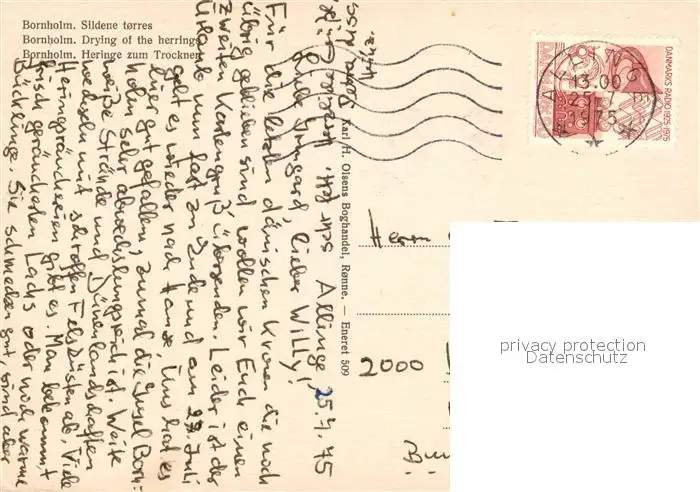 Bornholm. Sildene tørres
Bornholm. Drying of the herrings
Bornholm. Heringe zum Trocknen
Karl H. Olsens Boghandel, Rønne. — Eneret 509
DANMARKS RADIO 1925 1975
ALLINGE
13.00
1975
Allinge, 25.7.75
Liebe Irmgard, lieber Willy!
Für die letzten dänischen Kronen die noch
übrig geblieben sind wollen wir Euch einen
zweiten Kartengruß übersenden. Leider ist der
Urlaub nun fast zu Ende und am 27. Juli
geht es wieder nach Hause, Uns hat es
hier gut gefallen, zumal die Insel Born-
holm sehr abwechslungsreich ist. Weite
weiße Strände und Dünenlandschaften
wechseln mit schroffen Felsküsten ab. Viele
Heringsräuchereien gibt es. Man bekommt
frisch geräucherten Lachs oder noch warme
Bücklinge. Sie schmecken gut, sind aber
Herrn
2000
privacy protection
Datenschutz